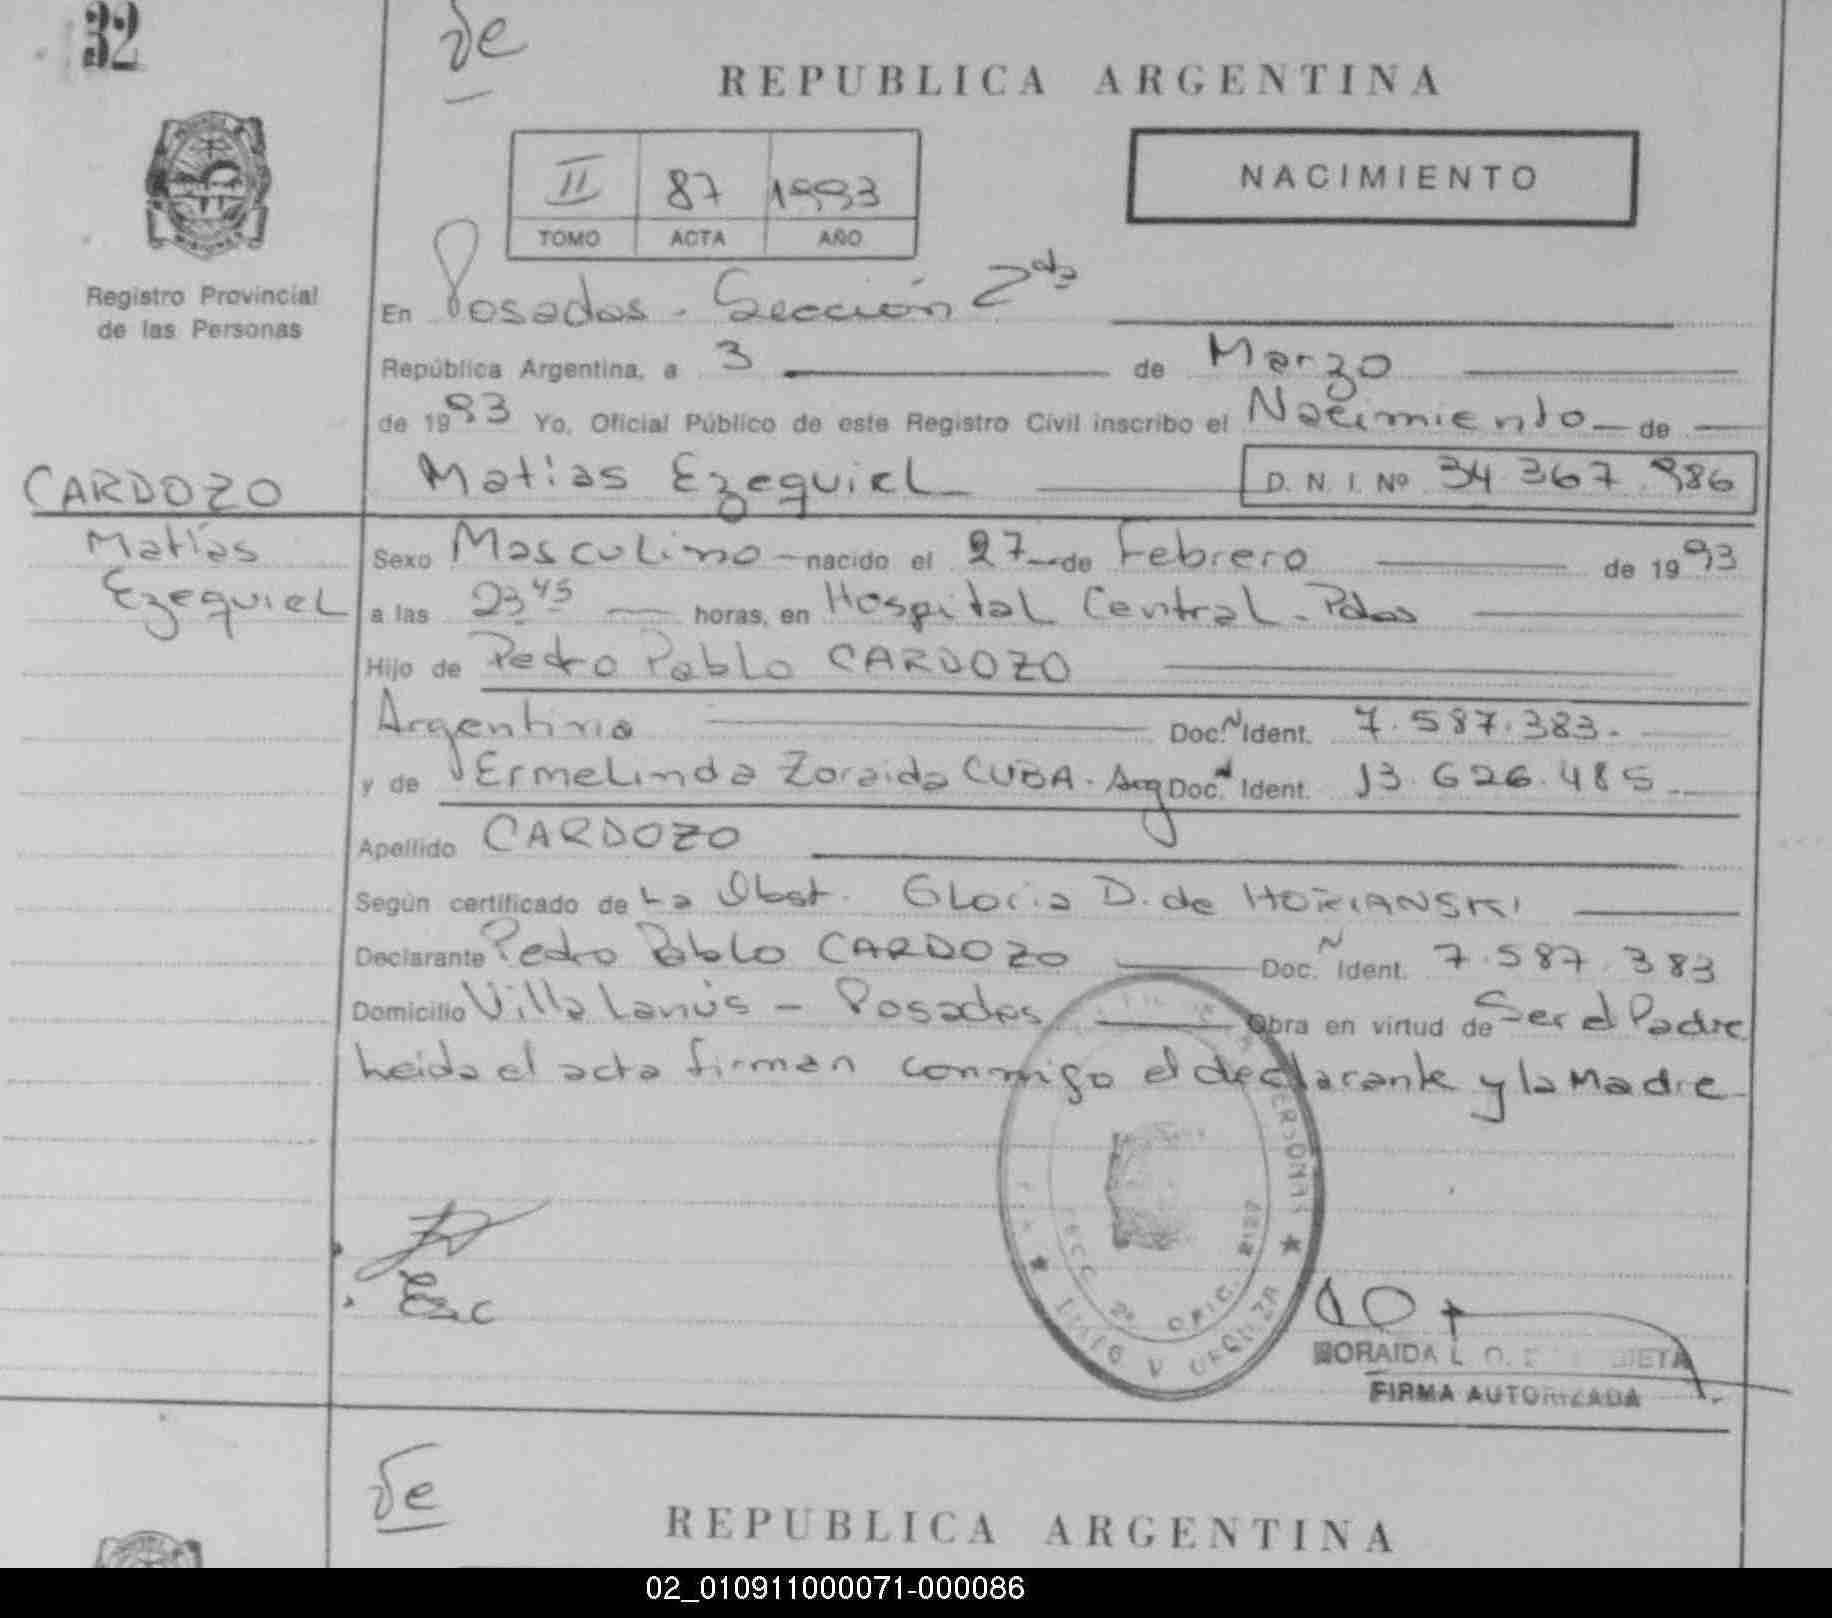 32
de
REPUBLICA ARGENTINA
II 87 1993
TOMO ACTA AÑO
NACIMIENTO
Registro Provincial
de las Personas
En Posadas - Sección 2da
República Argentina, a 3 de Marzo
de 1993 Yo, Oficial Público de este Registro Civil inscribo el Nacimiento de
Matías Ezequiel D. N. I. Nº 34.367.986
CARDOZO
Matías
Ezequiel
Sexo Masculino nacido el 27 de Febrero de 1993
a las 23 45 horas, en Hospital Central - Pdas
Hijo de Pedro Pablo CARDOZO
Argentina Doc. N Ident. 7.587.383.
y de Ermelinda Zoraida CUBA - Arg Doc. N Ident. 13.626.485
Apellido CARDOZO
Según certificado de La Obst. Gloria D. de HORIANSKI
Declarante Pedro Pablo CARDOZO Doc. N Ident. 7.587.383
Domicilio Villa Lanús - Posadas Obra en virtud de Ser el Padre
Leida el acta firman conmigo el declarante y la Madre
PERSONAS
SECC. 2ª OFIC.
URQUIZA
FIRMA AUTORIZADA
de
REPUBLICA ARGENTINA
02_010911000071-000086